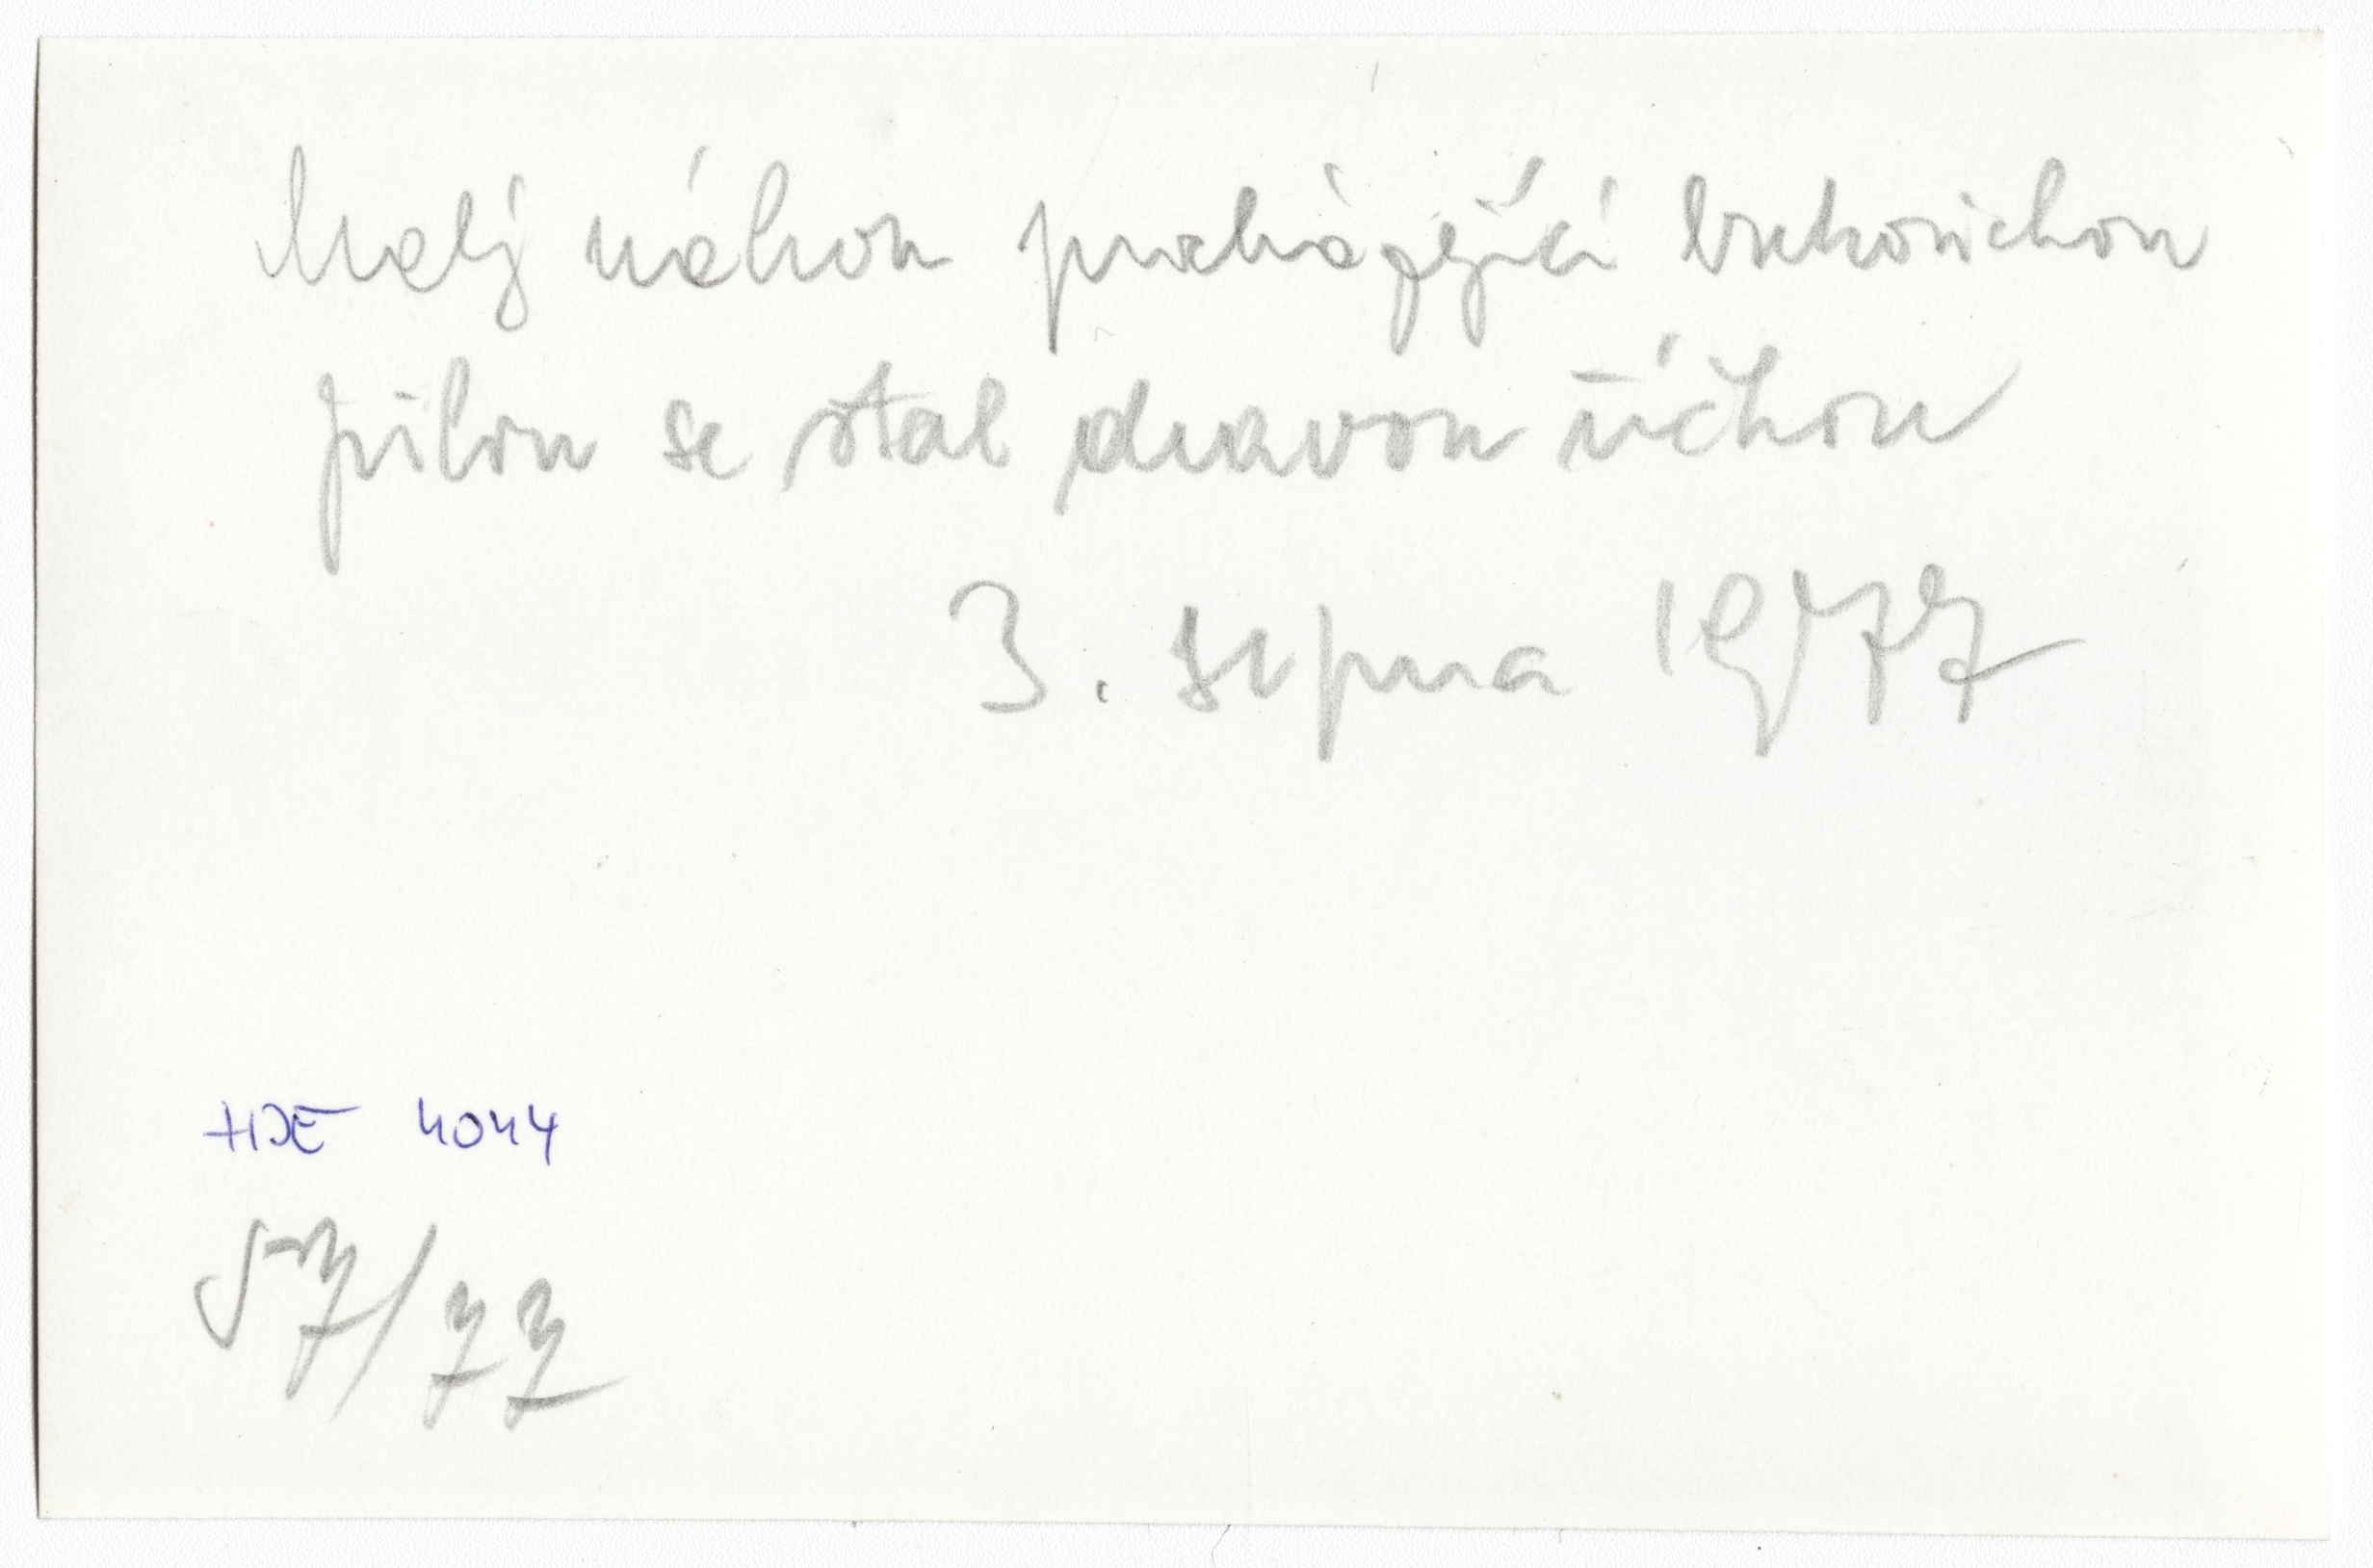 Malý náhon procházející brchovickou
pilou se stal dravou říčkou
3. srpna 1977
HDE 4044
57/77